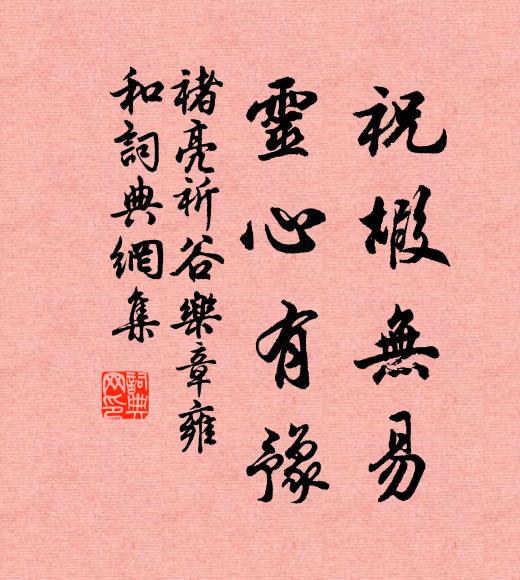 祝嘏無易
靈心有豫
褚亮祈谷樂章雍
和詞典網集
詞典
网印